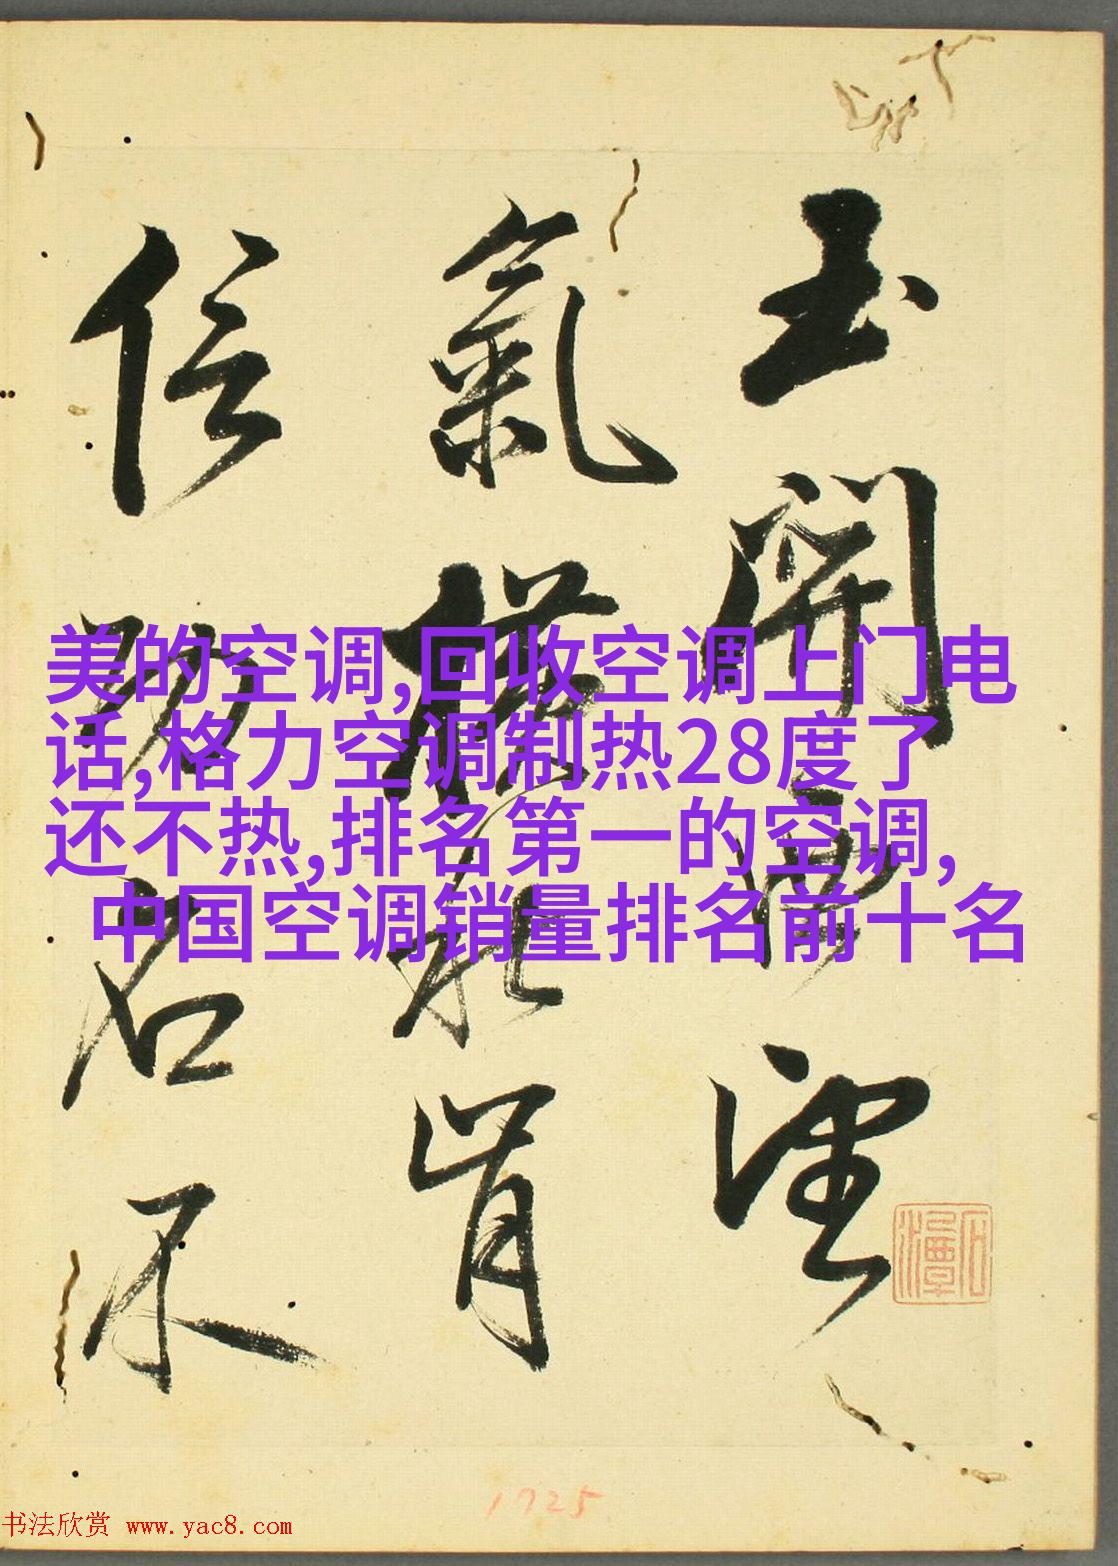 玉開西望
氣横秋肯
信功名不
美的空调,回收空调上门电
话,格力空调制热28度了
还不热,排名第一的空调,
中国空调销量排名前十名
石潭
1725
书法欣赏 www.yac8.com